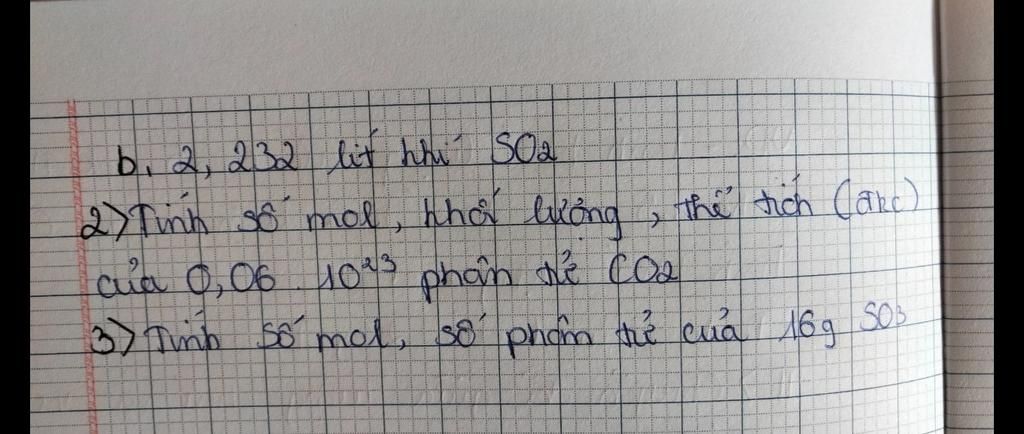 b, 2,232 lít khí SO2
2) Tính số mol, khối lượng, thể tích (đkc)
của 0,06. 10²³ phân tử CO2
3) Tính số mol, số phân tử của 16g SO3